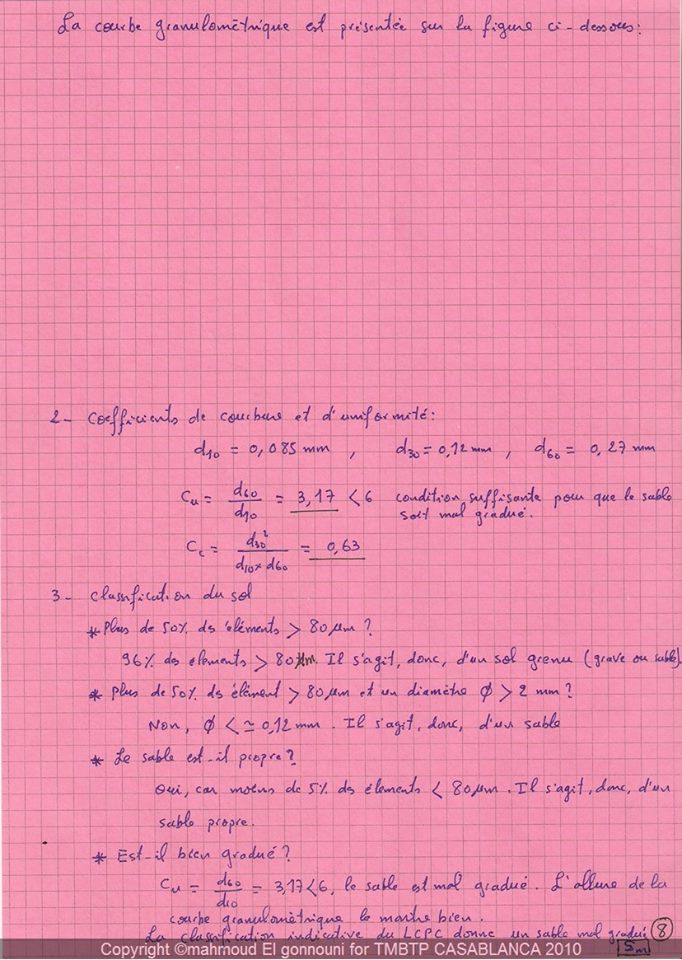 La courbe granulomètrique est présentée sur la figure ci-dessous:
2- Coefficients de courbure et d'uniformité:
d10 = 0,085 mm , d30 = 0,12 mm , d60 = 0,27 mm
Cu = d60/d10 = 3,17 < 6 condition suffisante pour que le sable
soit mal gradué.
Cc = d30²/d10×d60 = 0,63
3- Classification du sol
* Plus de 50% des éléments > 80 µm ?
96% des elements > 80 µm. Il s'agit, donc, d'un sol grenu (grave ou sable)
* Plus de 50% des élément > 80 µm et un diamètre ø > 2 mm ?
Non, ø < ≃ 0,12 mm. Il s'agit, donc, d'un sable
* Le sable est-il propre ?
Oui, car moins de 5% des élements < 80 µm. Il s'agit, donc, d'un
sable propre.
* Est-il bien gradué ?
Cu = d60/d10 = 3,17 < 6, le sable est mal gradué. L'allure de la
courbe granulomètrique le montre bien.
La classification indicative du LCPC donne un sable mal gradué
8
Sm
Copyright ©mahmoud El gonnouni for TMBTP CASABLANCA 2010